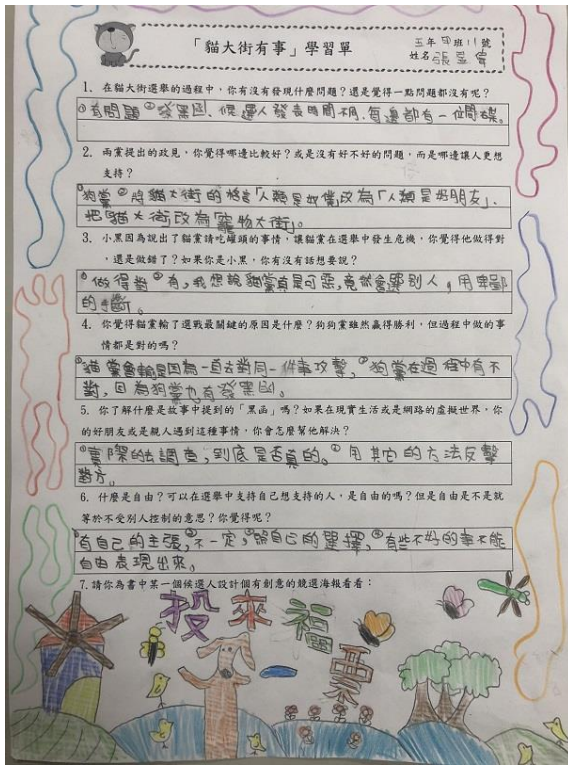 「貓大街有事」學習單
五年四班11號
姓名張
1. 在貓大街選舉的過程中，你有沒有發現什麼問題？還是覺得一點問題都沒有呢？
①有問題②發黑函、候選人發表時間不同、每邊都有一位間諜。
2. 兩黨提出的政見，你覺得哪邊比較好？或是沒有好不好的問題，而是哪邊讓人更想
支持？
①狗黨②將貓大街的格言「人類是奴僕」改為「人類是好朋友」、
把「貓大街」改為「寵物大街」。
3. 小黑因為說出了貓黨請吃罐頭的事情，讓貓黨在選舉中發生危機，你覺得他做得對
，還是做錯了？如果你是小黑，你有沒有話想要說？
①做得對②有，我想說貓黨真是可惡，竟然會 別人，用卑鄙
的手斷。
4. 你覺得貓黨輸了選戰最關鍵的原因是什麼？狗狗黨雖然贏得勝利，但過程中做的事
情都是對的嗎？
①貓黨會輸是因為一直去對同一件事攻擊，②狗黨在過程中有不
對，因為狗黨也有發黑函。
5. 你了解什麼是故事中提到的「黑函」嗎？如果在現實生活或是網路的虛擬世界，你
的好朋友或是親人遇到這種事情，你會怎麼幫他解決？
①實際的去調查，到底是否真的。②用其它的方法反擊
對方。
6. 什麼是自由？可以在選舉中支持自己想支持的人，是自由的嗎？但是自由是不是就
等於不受別人控制的意思？你覺得呢？
①有自己的主張，②不一定，③跟自己的選擇，④有些不好的事不能
自由表現出來。
7. 請你為書中某一個候選人設計個有創意的競選海報看看：
投來福一票